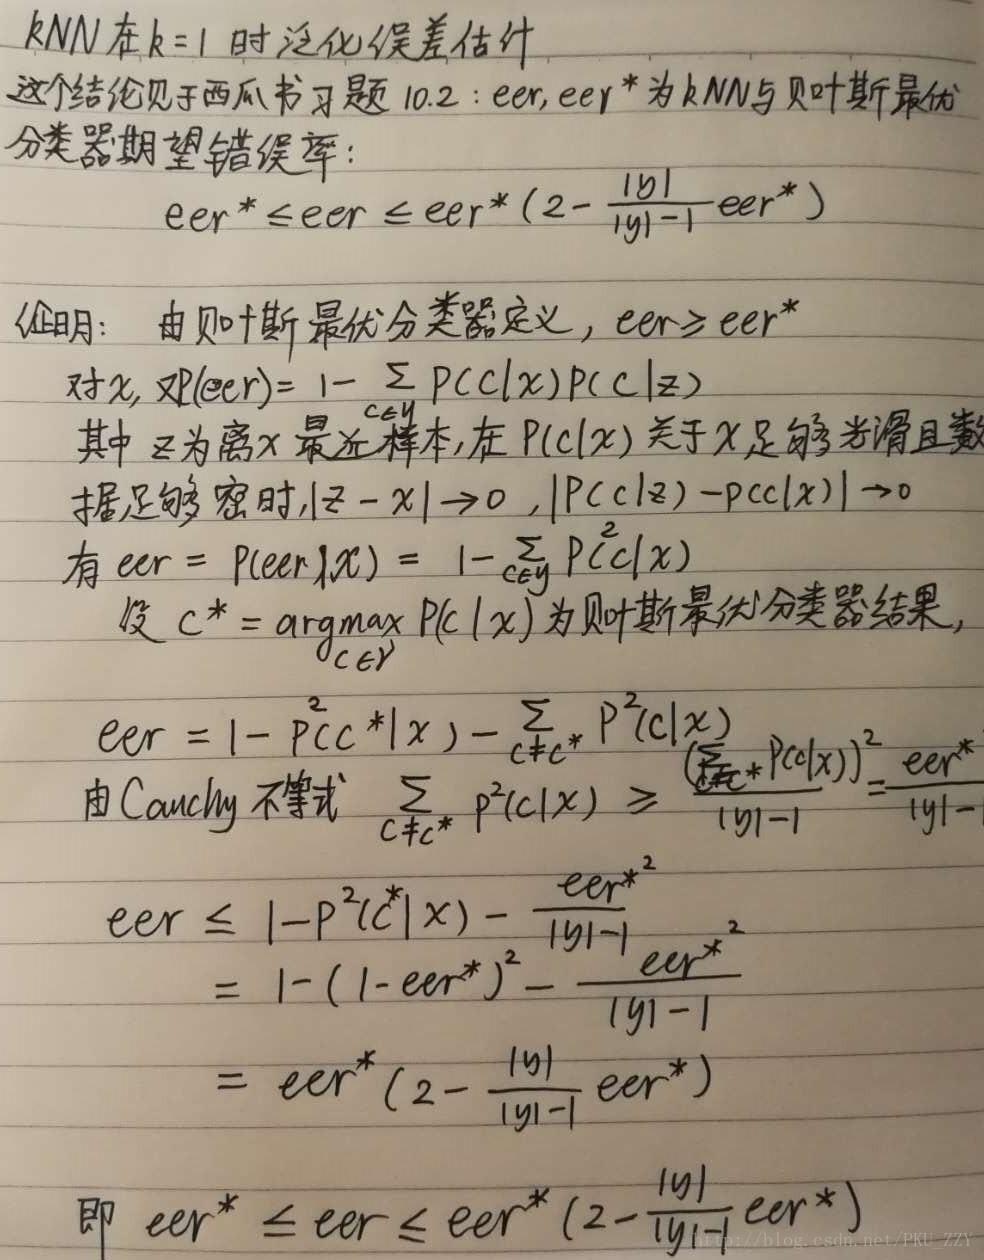 kNN在k=1时泛化误差估计
这个结论见于西瓜书习题10.2:eer,eer*为kNN与贝叶斯最优
分类器期望错误率:
eer* ≤ eer ≤ eer*(2 - |y|/(|y|-1) eer*)
证明: 由贝叶斯最优分类器定义, eer ≥ eer*
对x, 又P(eer) = 1 - Σ_{c∈y} P(c|x)P(c|z)
其中 z为离x最近样本,在P(c|x)关于x足够光滑且数
据足够密时,|z-x|→0 ,|P(c|z)-P(c|x)|→0
有 eer = P(eer|x) = 1 - Σ_{c∈y} P²(c|x)
设 c* = argmax_{c∈y} P(c|x)为贝叶斯最优分类器结果,
eer = 1 - P²(c*|x) - Σ_{c≠c*} P²(c|x)
由Cauchy不等式 Σ_{c≠c*} P²(c|x) ≥ (Σ_{c≠c*} P(c|x))²/(|y|-1) = eer*/(|y|-1
eer ≤ 1-P²(c*|x) - eer*²/(|y|-1)
= 1-(1-eer*)² - eer*²/(|y|-1)
= eer*(2 - |y|/(|y|-1) eer*)
即 eer* ≤ eer ≤ eer*(2 - |y|/(|y|-1) eer*)
http://blog.csdn.net/PKU_ZZY